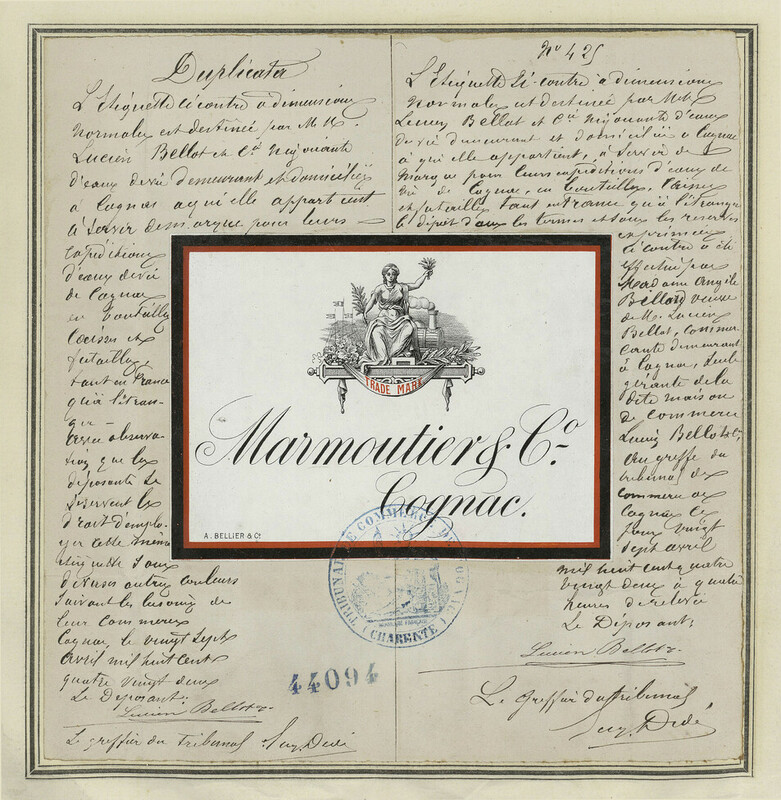 Duplicata
L'Etiquette ci contre a dimensions
Normales est destinée par M. M.
Lucien Bellot et Cie Négociants
d'eaux de vie demeurant et domiciliés
à Cognac à qui elle appartient
à Servir de marque pour leurs
expéditions
d'eaux de vie
de Cognac
en bouteilles
Caisses et
futailles
tant en France
qu'à l'étran-
ger -
avec observa-
tion que les
déposants se
réservent le
droit d'emplo-
yer cette même
étiquette sous
diverses autres couleurs
suivant les besoins de
leur commerce
Cognac le vingt sept
avril mil huit cent
quatre vingt deux
Le Déposant:
Lucien Bellot
Le greffier du tribunal
No 425
L'Etiquette ci-contre à dimensions
Normales est destinée par M. M.
Lucien Bellot et Cie Négociants d'eaux
de vie demeurant et domiciliés à Cognac
à qui elle appartient, à servir de
Marque pour leurs expéditions d'eaux de
vie de Cognac, en bouteilles, Caisses
et futailles tant en France qu'à l'étranger
le dépôt dans les termes et sous les réserves
exprimées
ci contre a été
effectué par
Madame Angèle
Billard veuve
de M. Lucien
Bellot, commer
çante demeurant
à Cognac, seule
gérante de la
dite maison
de commerce
Lucien Bellot & Cie
au greffe du
tribunal de
commerce de
Cognac ce
jour vingt
sept avril
mil huit cent quatre
vingt deux à quatre
heures de relevée
Le Déposant:
Lucien Bellot
Le Greffier du tribunal
TRADE MARK
Marmoutier & Co.
Cognac.
A. BELLIER & Co.
TRIBUNAL DE COMMERCE DE COGNAC
(CHARENTE)
44094